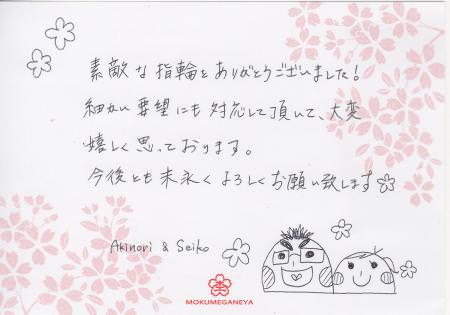 素敵な指輪をありがとうございました!
細かい要望にも対応して頂いて、大変
嬉しく思っております。
今後とも末永くよろしくお願い致します
Akinori & Seiko
MOKUMEGANEYA